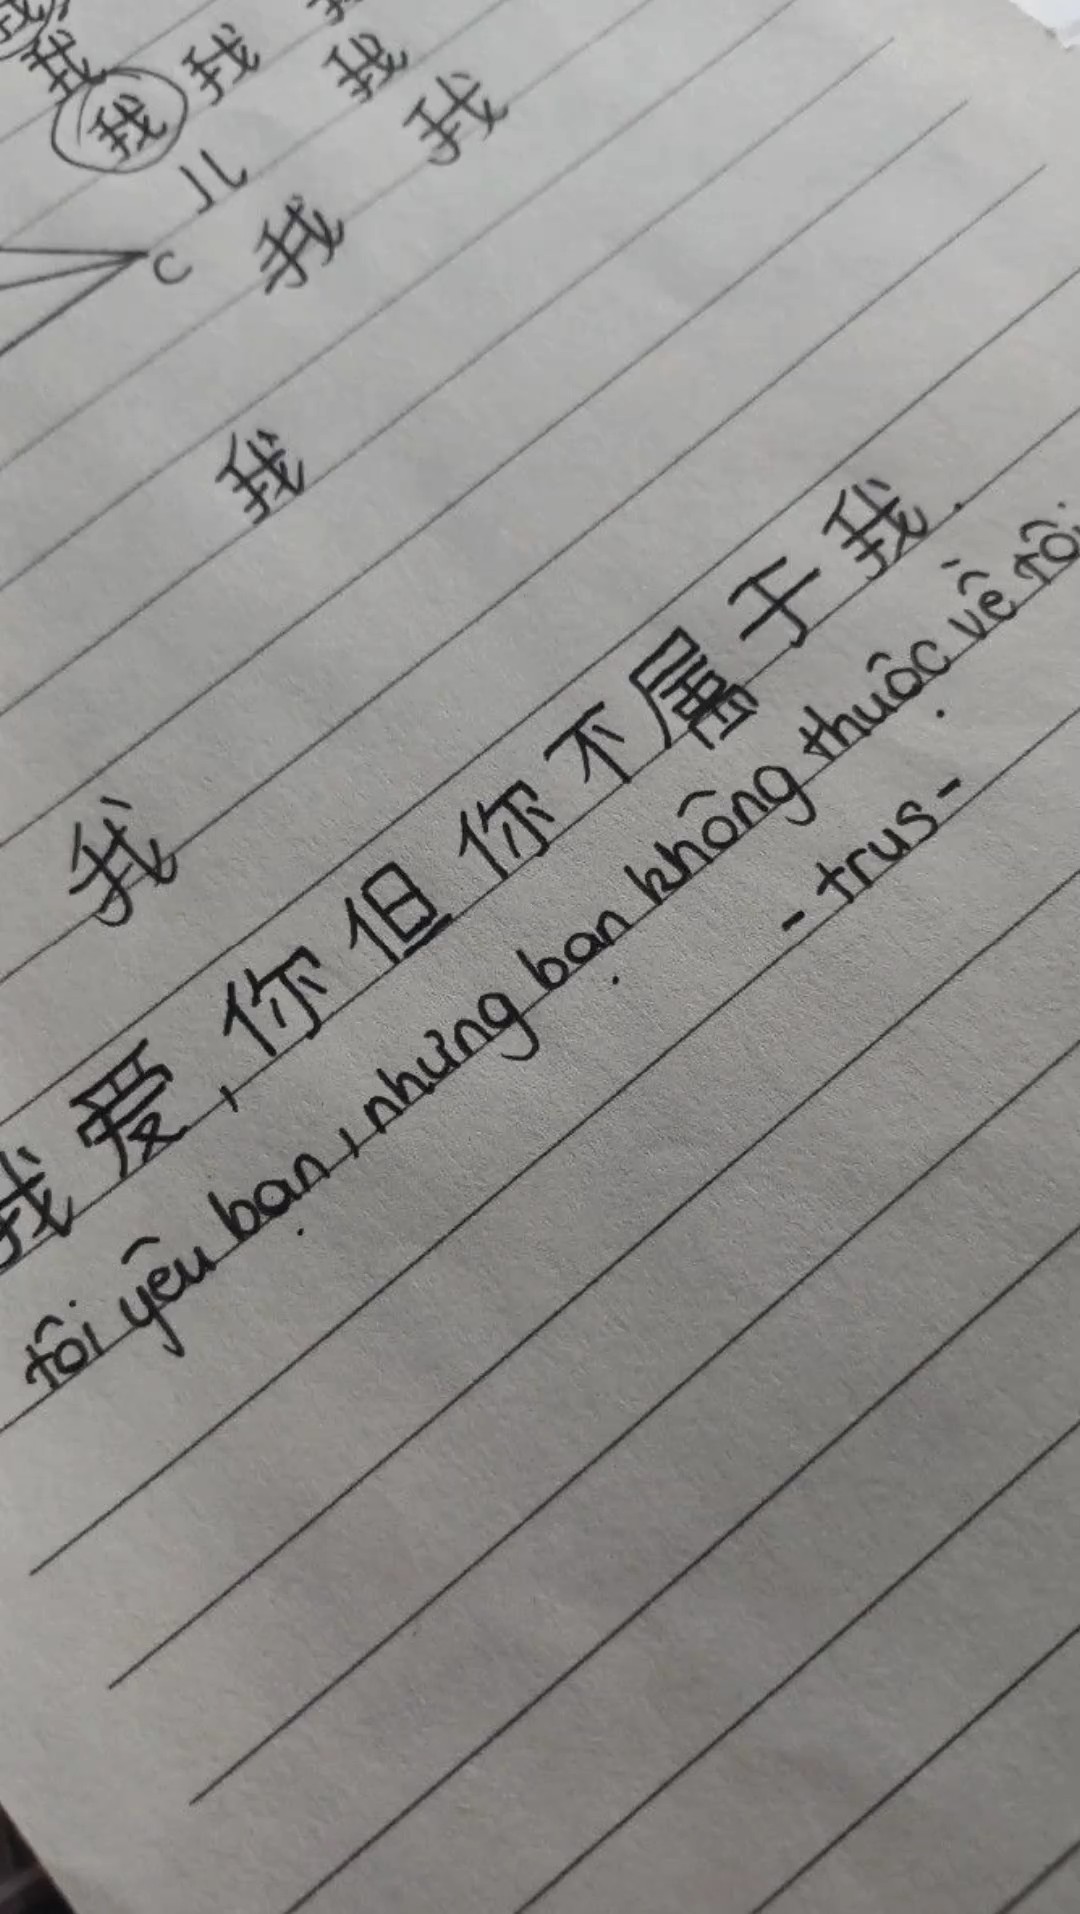 我
我 我 我
我 我
儿
C 我
我
我
我爱,你但你不属于我.
tôi yêu bạn, nhưng bạn không thuộc về tôi
- trus -